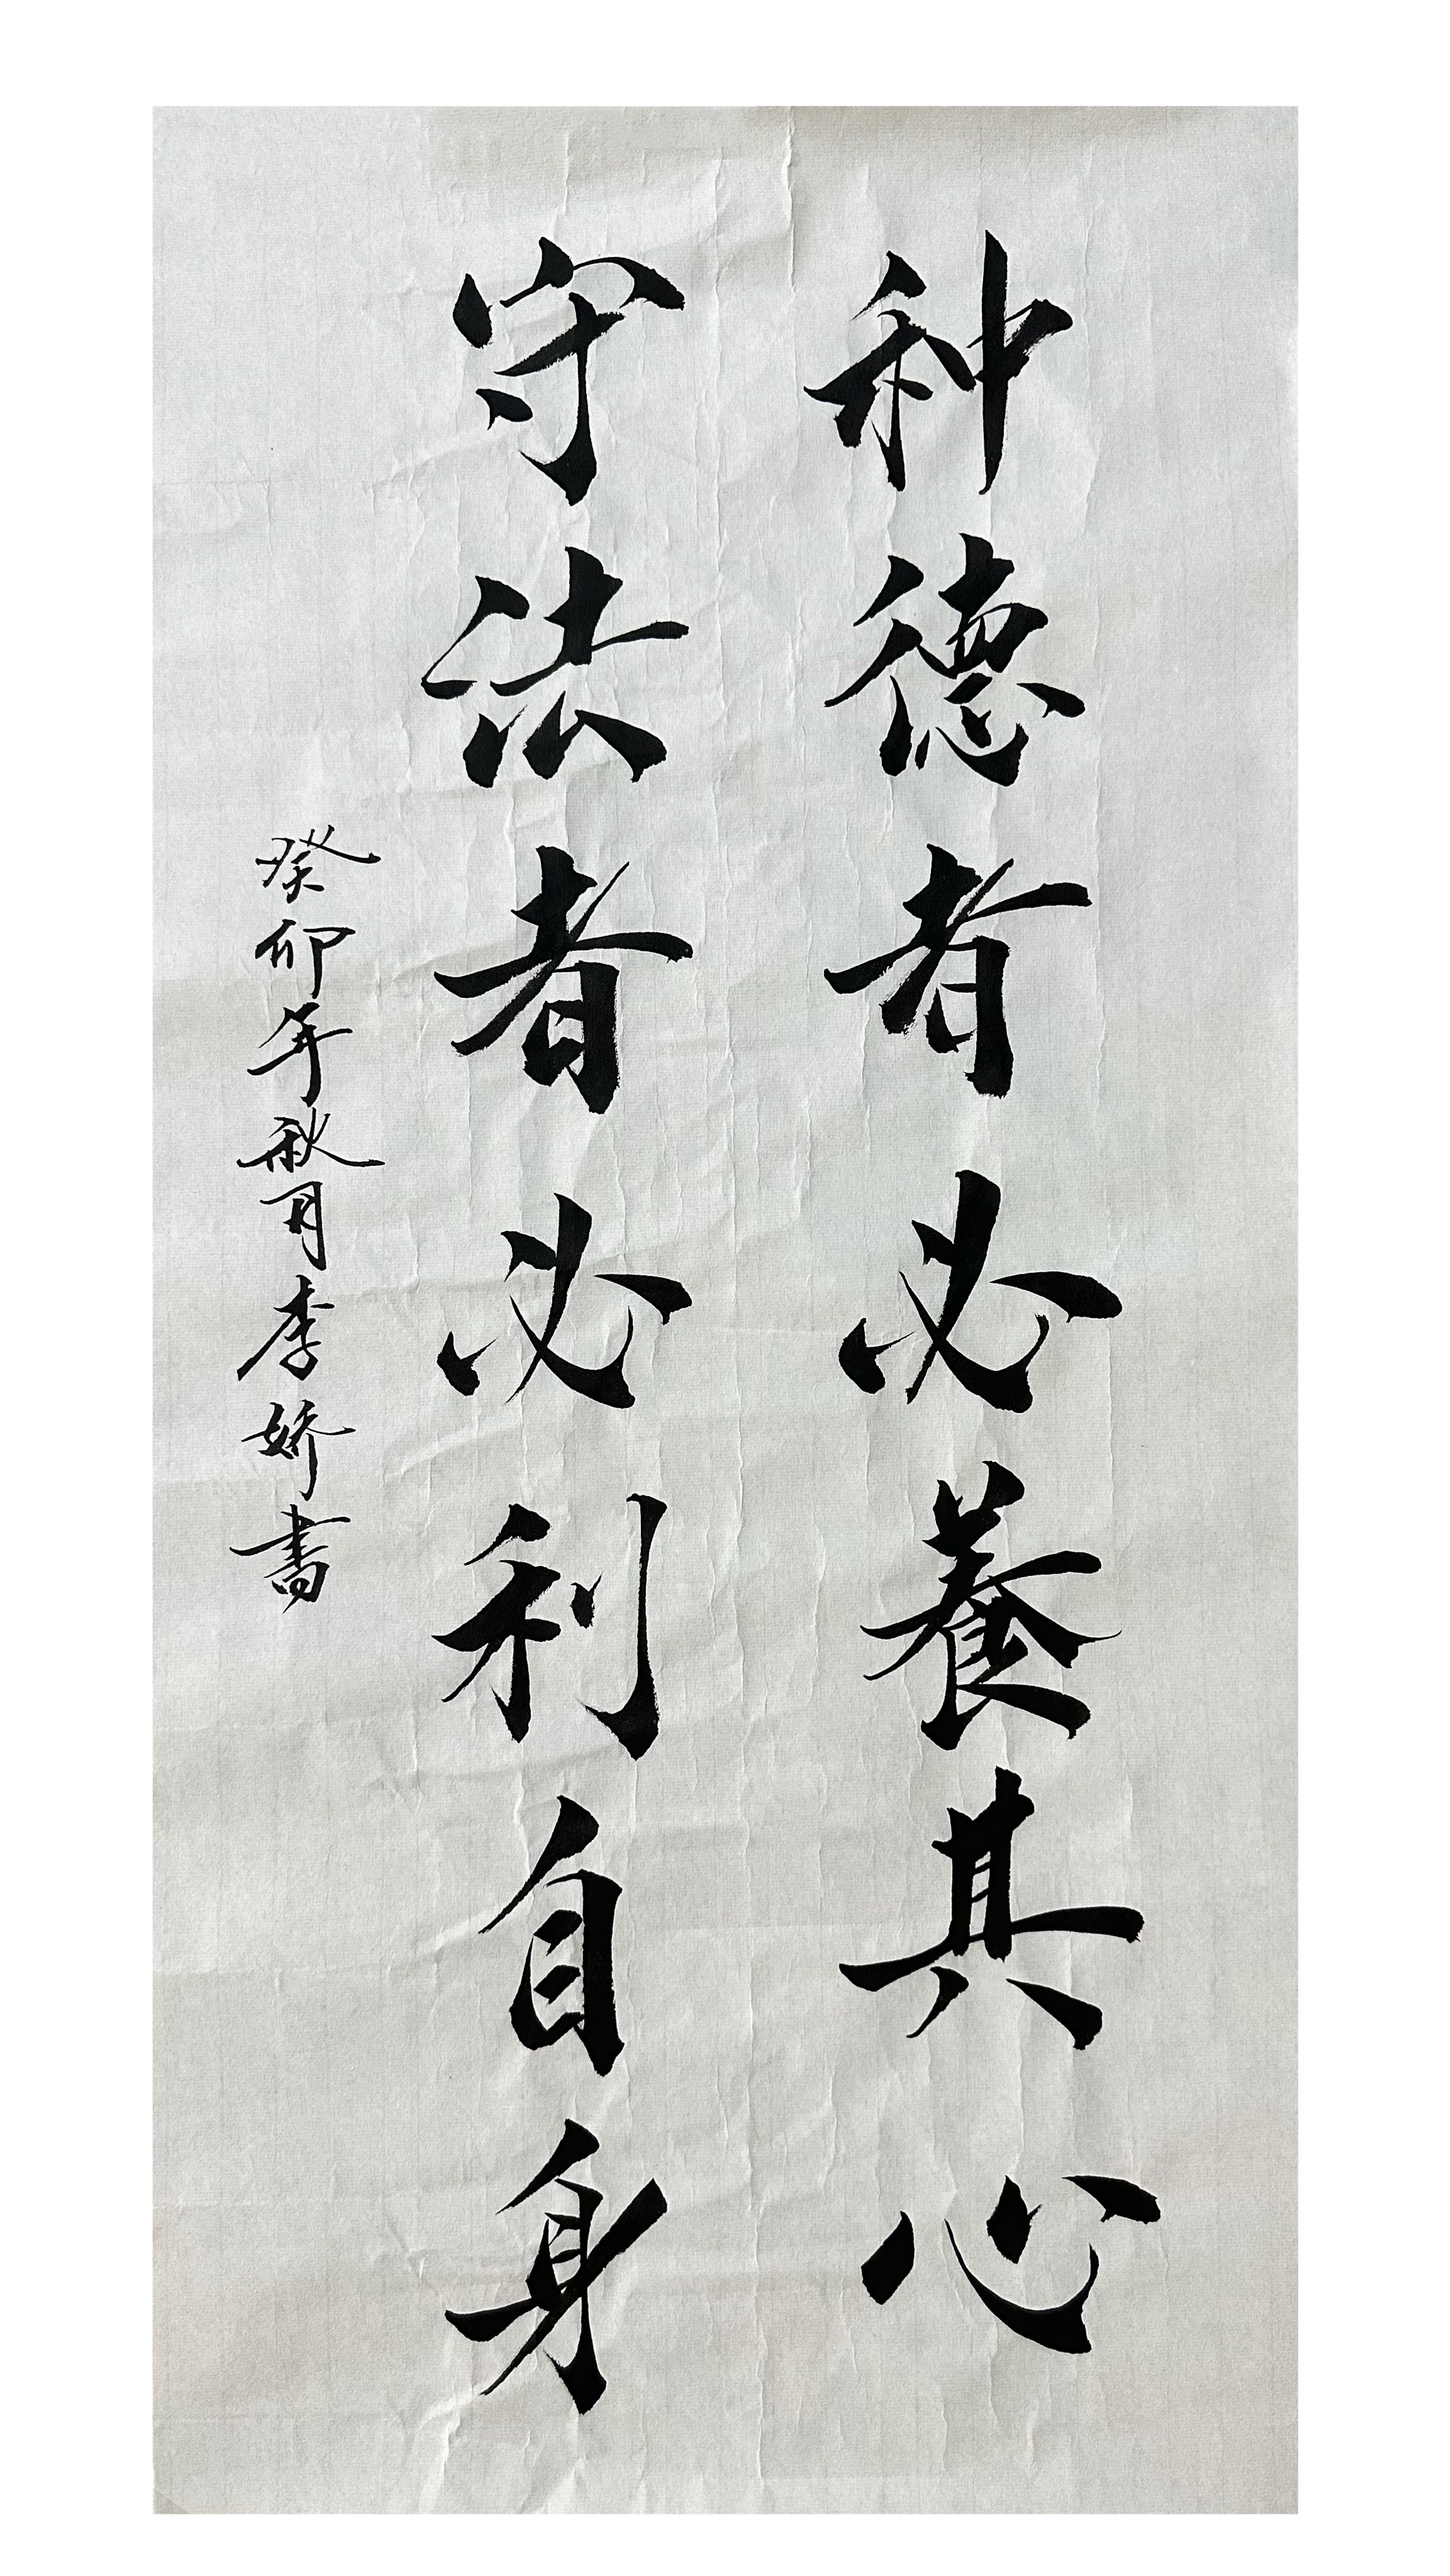 种德者必養其心
守法者必利自身
癸卯年秋月李娇書